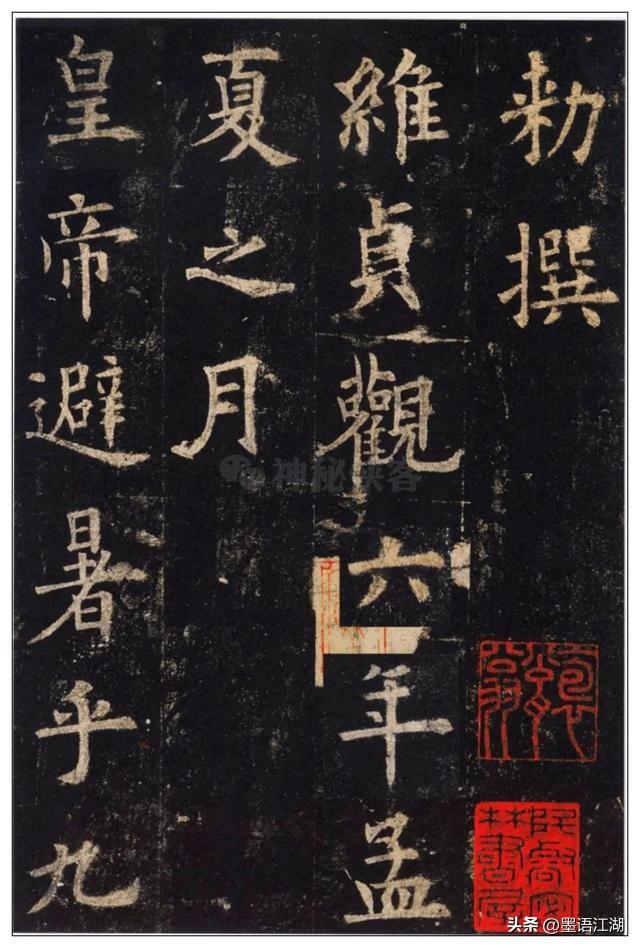 勑撰
維貞觀六年孟
夏之月
皇帝避暑乎九
神秘侠客
头条 @墨语江湖